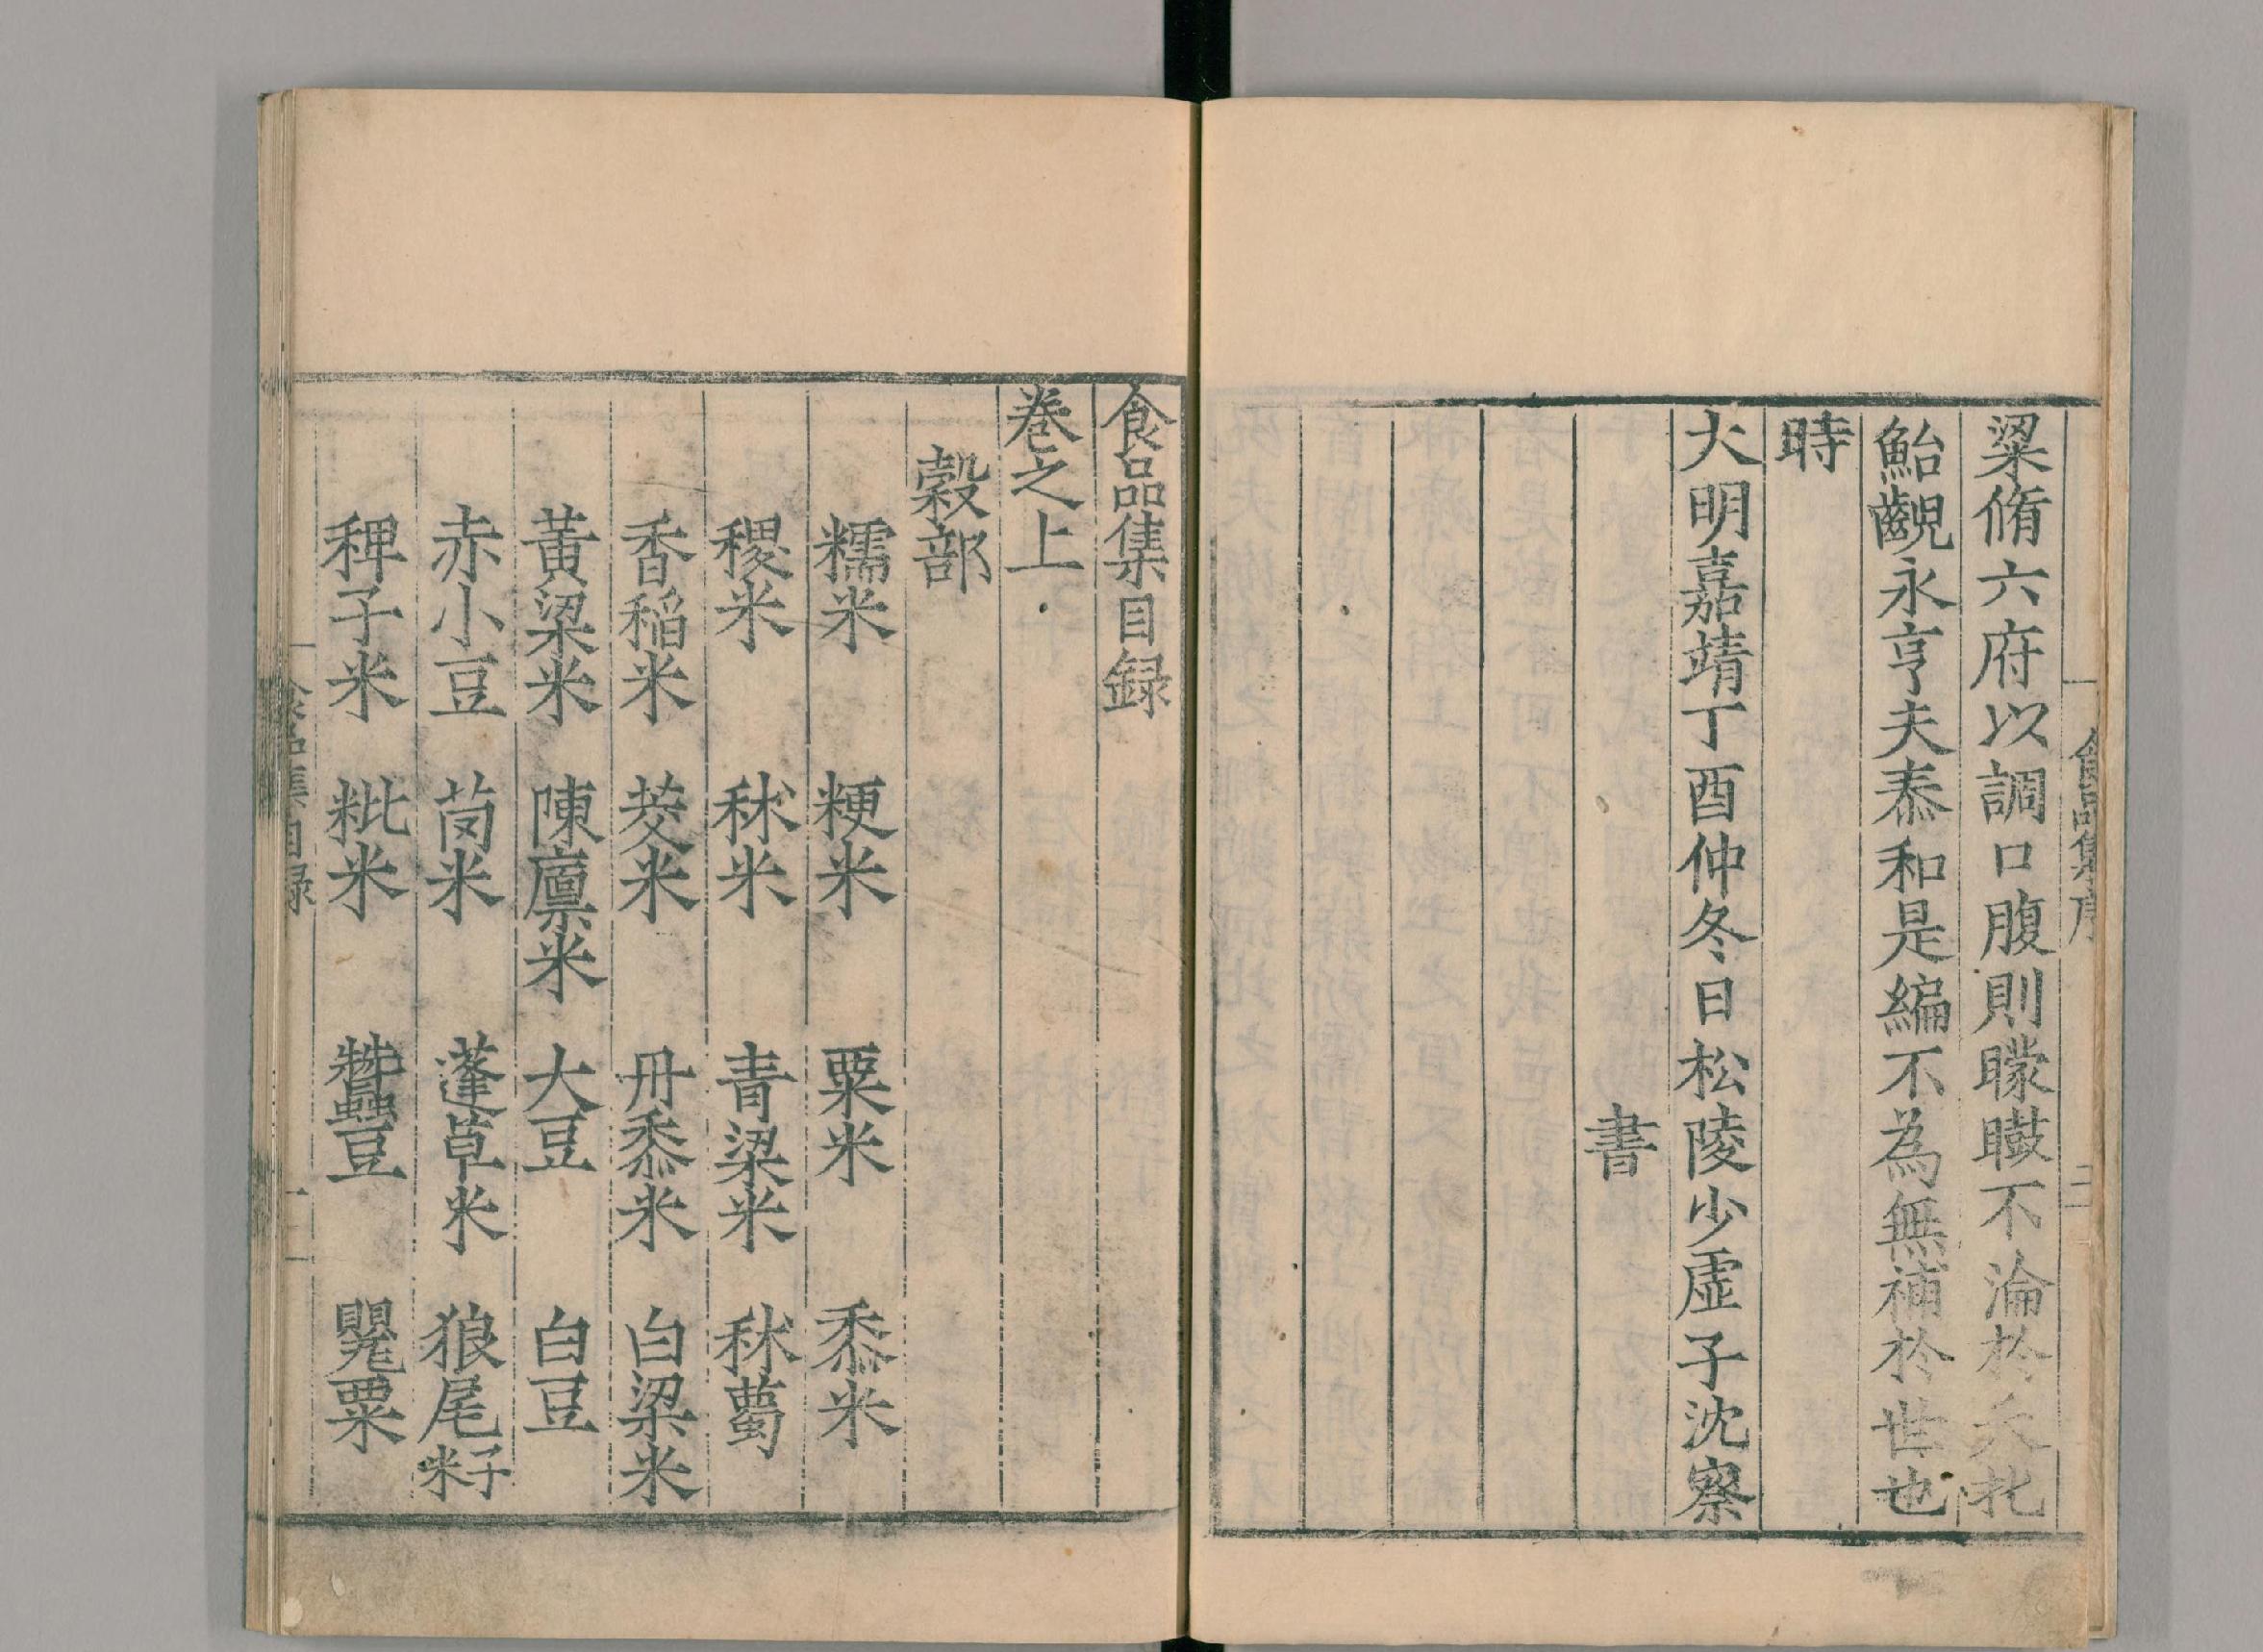 食品集序 二
粱脩六府以調口腹則矇瞽不淪於夭札
鮐齯永亨夫泰和是編不為無補於世也
時
大明嘉靖丁酉仲冬日松陵少虛子沈察
書
食品集目録
卷之上
穀部
糯米 粳米 粟米 黍米
稷米 秫米 青粱米 秫薥
香稻米 茭米 丹黍米 白粱米
黃粱米 陳廩米 大豆 白豆
赤小豆 䒟米 蓬草米 狼尾籽
稗子米 粃米 豆 甖粟
食品集目録 一